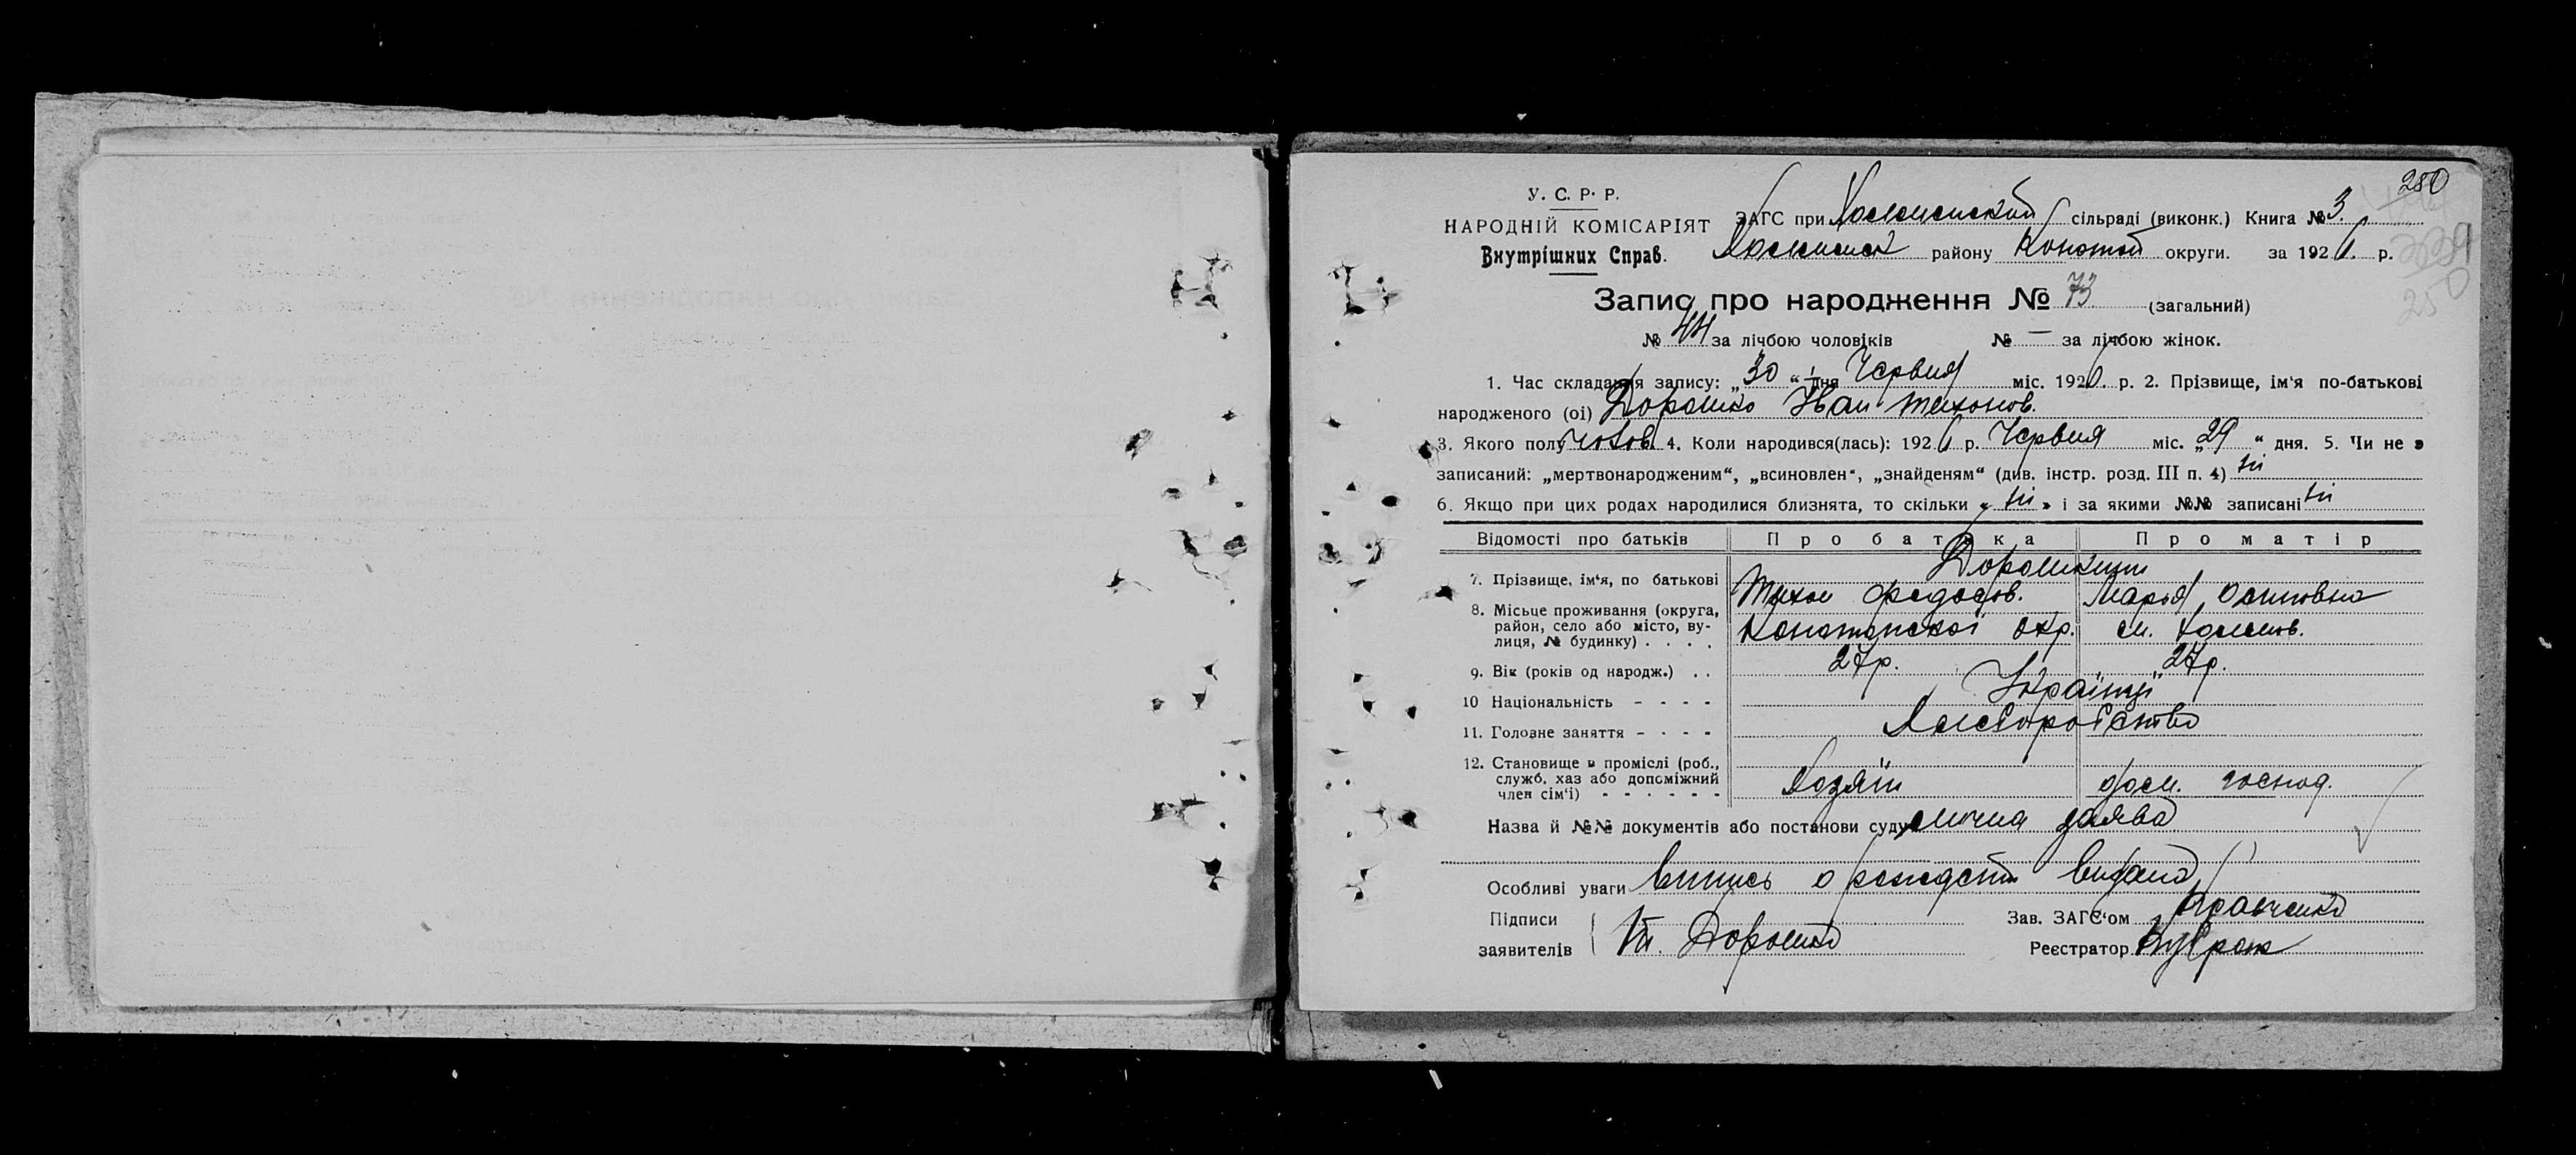 280
У. С. Р. Р.
НАРОДНІЙ КОМІСАРІЯТ
Внутрішних Справ.
ЗАГС при сільраді (виконк.) Книга № 3.
району Конотоп округи. за 1926 р.
250
Запис про народження № 73 (загальний)
№ 44 за лічбою чоловіків № — за лічбою жінок.
1. Час складання запису: „30“ дня Червня міс. 1926 р. 2. Прізвище, ім‘я по-батькові
народженого (ої) Дорошко Іван Тихонов.
3. Якого полу чолов. 4. Коли народився(лась): 1926 р. Червня міс. „29“ дня. 5. Чи не є
записаний: „мертвонародженим“, „всиновлен“, „знайденям“ (див. інстр. розд. III п. 4) ні
6. Якщо при цих родах народилися близнята, то скільки « ні » і за якими №№ записані ні
Відомості про батьків Про батька Про матір
7. Прізвище, ім‘я, по батькові Дорошки
Тихон Федосов. Марья Осиповна
8. Місьце проживання (округа, район, село або місто, вулиця, № будинку) . . . . Конотопської окр. м.
9. Вік (років од народж.) . . 27р. 27р.
10 Національність - - - - Українці
11. Головне заняття - - - - Хліборобство
12. Становище в промислі (роб., служб. хаз або допоміжний член сім‘ї) - - - - - - Хозяїн дом. господ.
Назва й №№ документів або постанови суду лична заява
Особливі уваги випись о рождении видана
Підписи
заявителів Т. Дорошко
Зав. ЗАГС‘ом Кравченко
Реєстратор